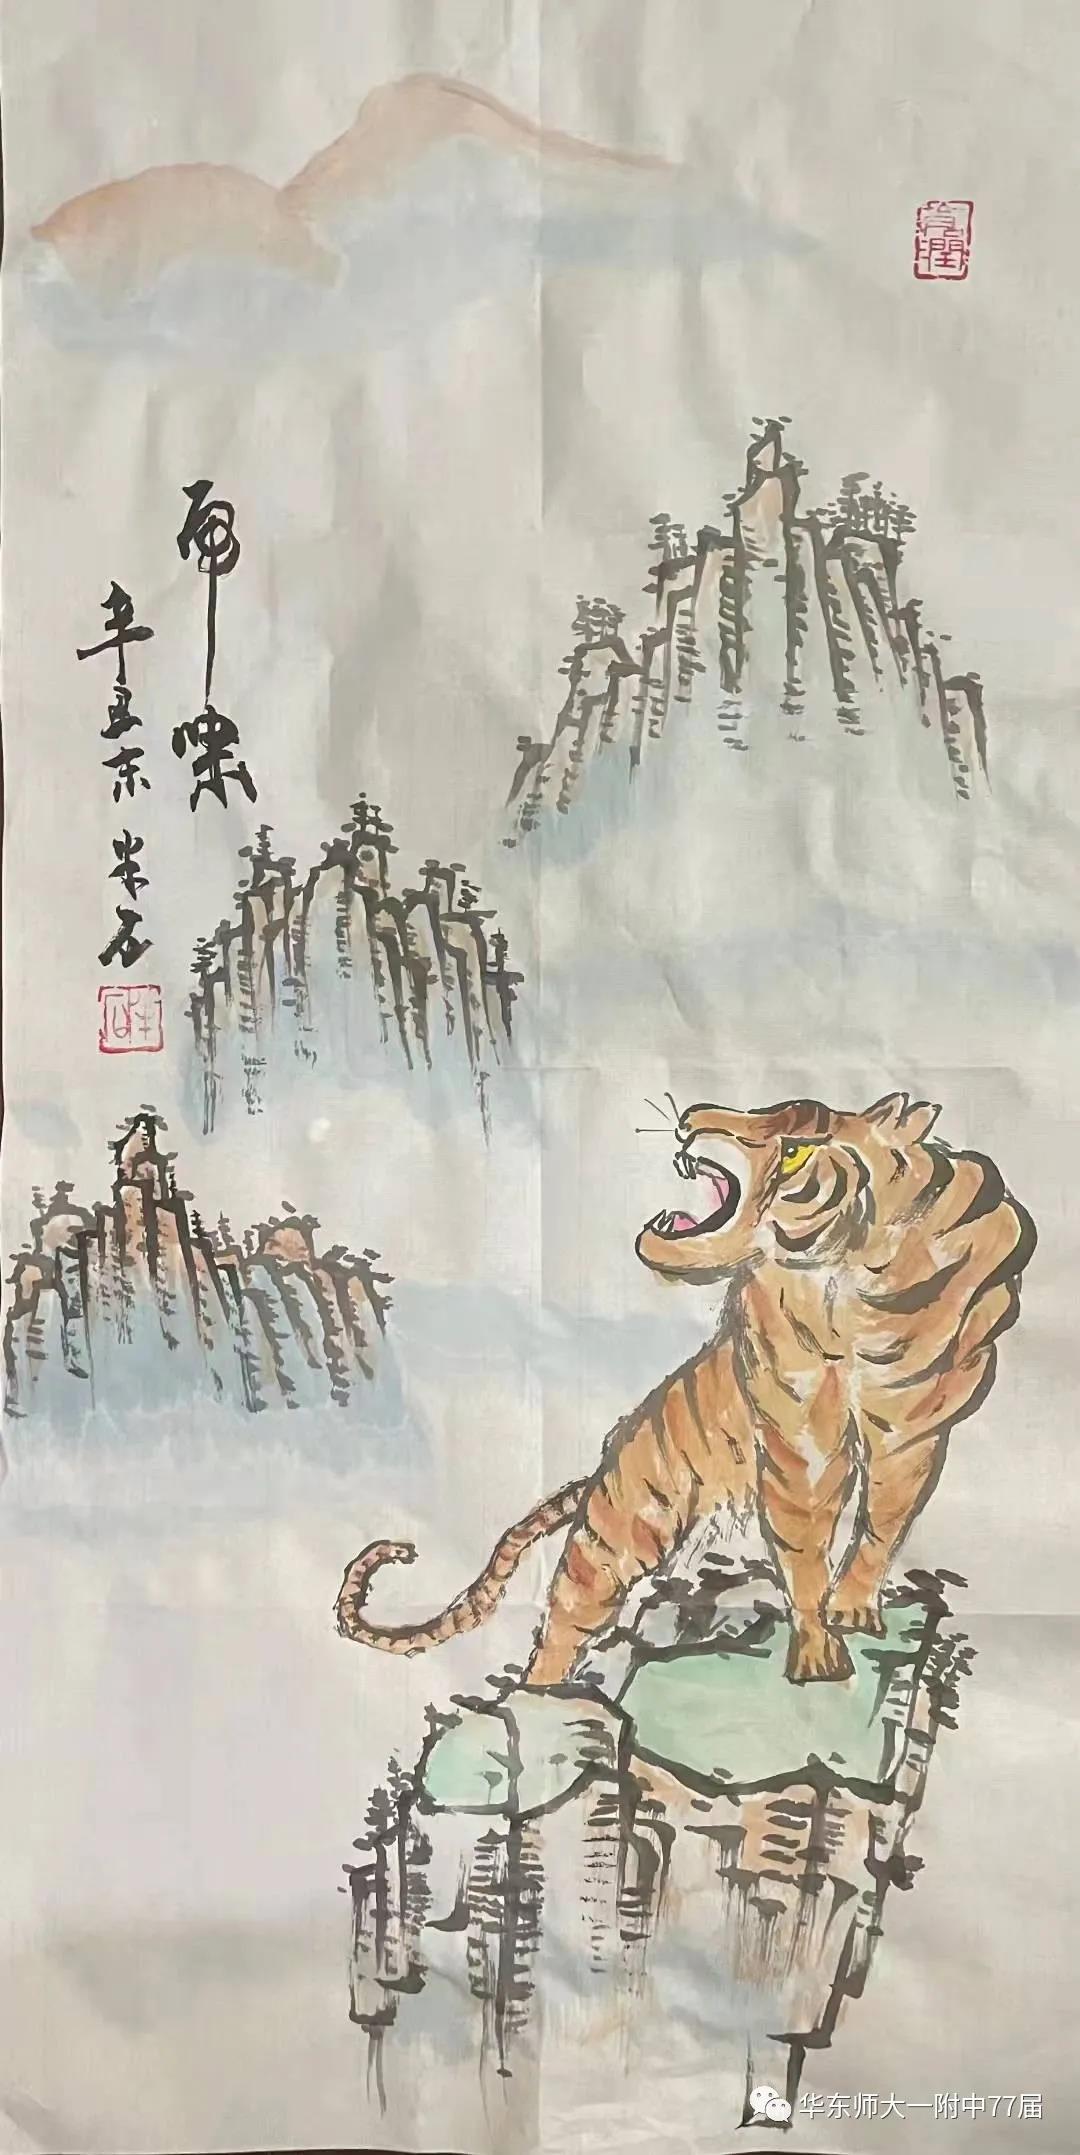 虎啸
辛丑冬 米石
华东师大一附中77届